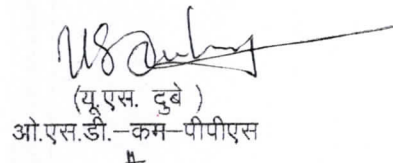 (यू.एस. दुबे )
ओ.एस.डी.–कम–पीपीएस